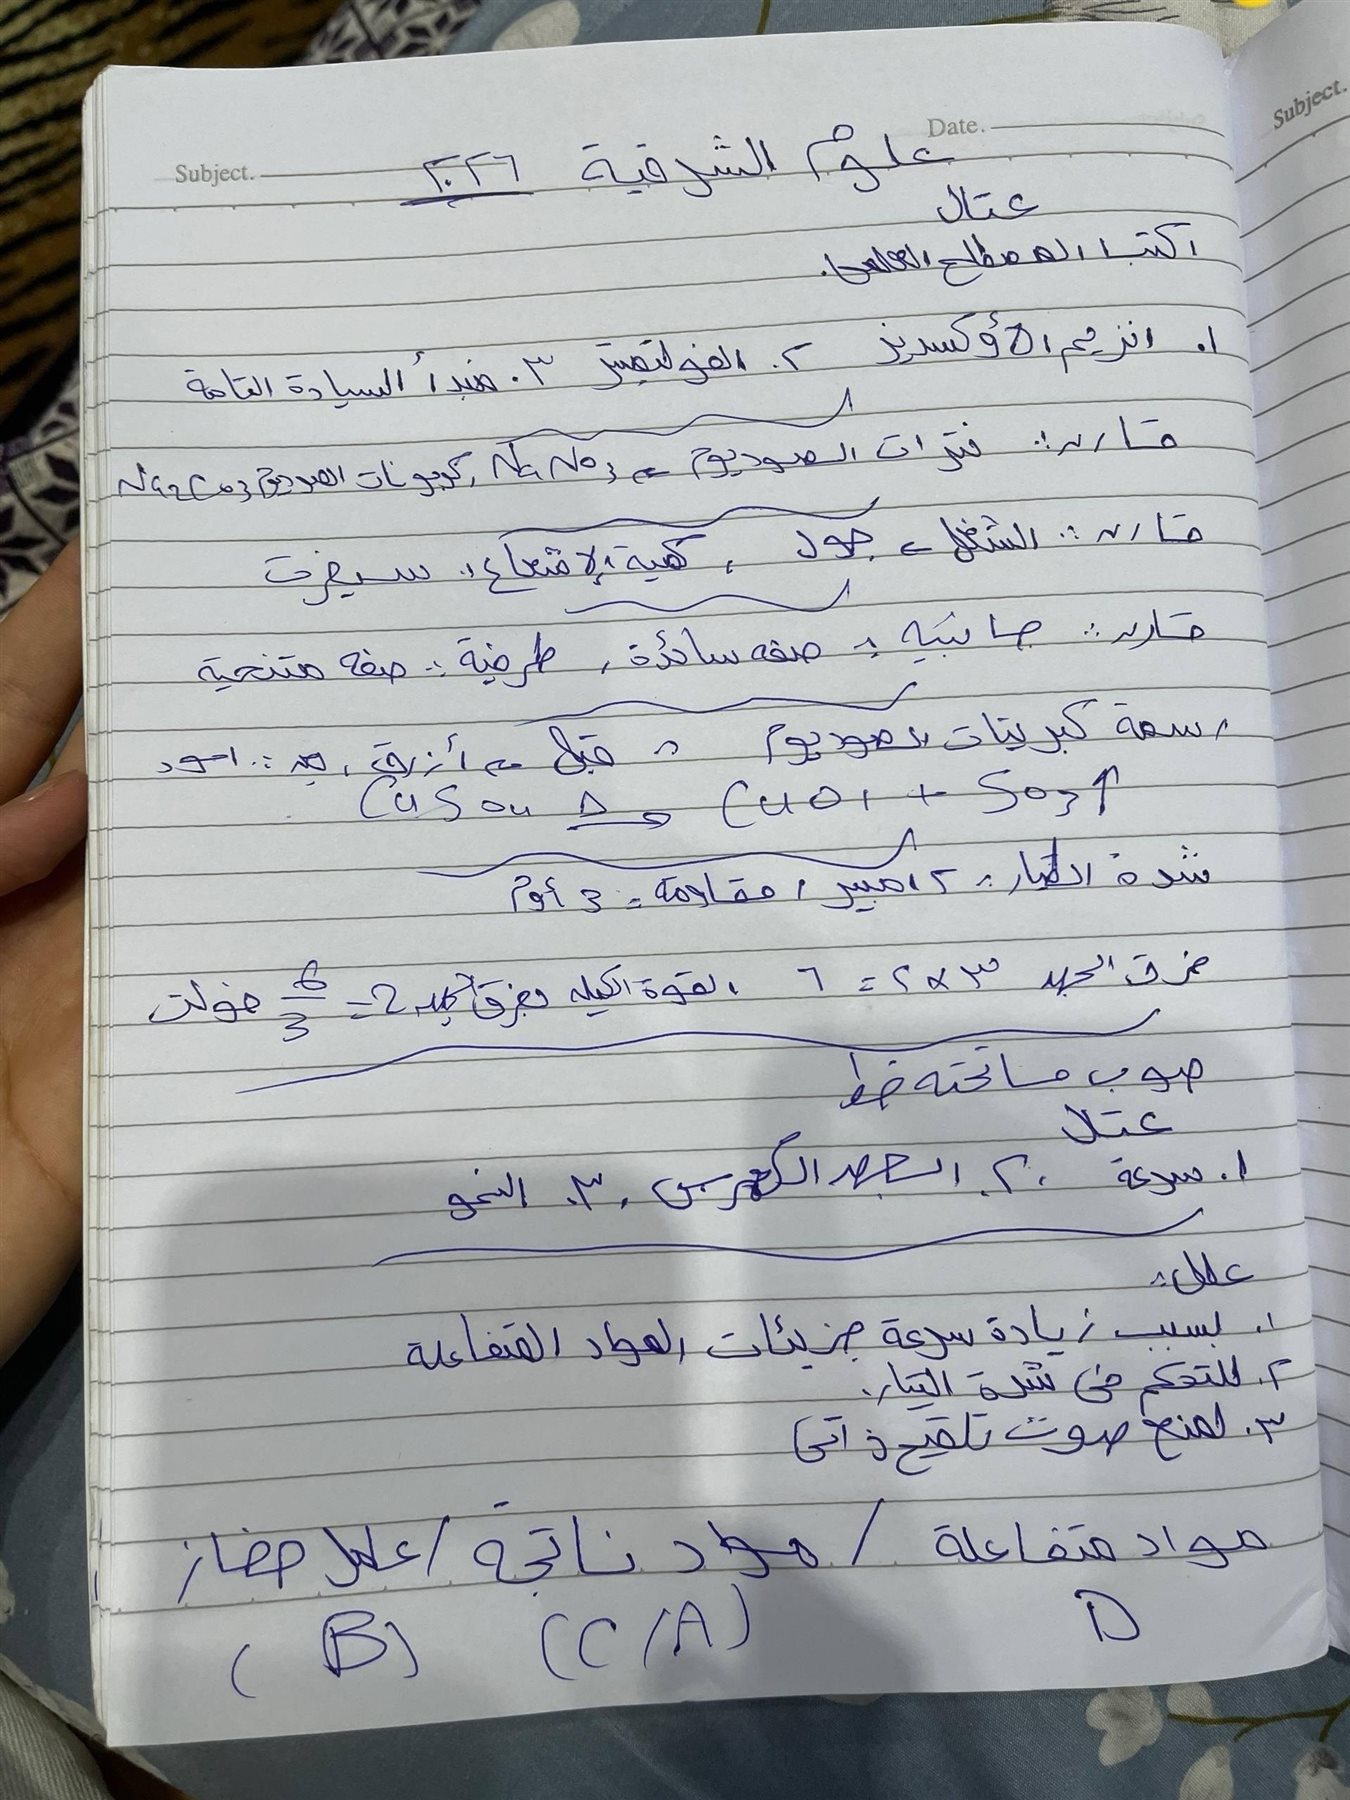 Subject.
Date.
Subject.
علوم الشرقية ٢٠٢٦
اكتب المصطلح العلمى.
١. انزيم الأوكسديز ٢. الفولتميتر ٣. مبدأ السيادة التامة
قارن: نترات الصوديوم NaNO3 , كربونات الصوديوم Na2CO3
قارن: الشغل جول , كمية الإشعاع: سيفرت
قارن: جانبيه: صفه سائدة , طرفية: صفه متنحية
رسمة كبريتات صوديوم : قبل أزرق , بعد: اسود
CuSO4 Δ→ CuO + SO3↑
شدة التيار: ٢ امبير , مقاومة = 3 أوم
فرق الجهد ٣ × ٢ = ٦ , القوة الكليه فرق الجهد 2 = 6/3 فولت
صوب ماتحته خط
١. سرعة , ٢. الجهد الكهربى , ٣. النمو
علل:
١. بسبب زيادة سرعة جزيئات المواد المتفاعلة
٢. للتحكم فى شدة التيار.
٣. لمنع تلقيح ذاتى
مواد متفاعلة / مواد ناتجة / عامل حفاز
D (C/A) (B)